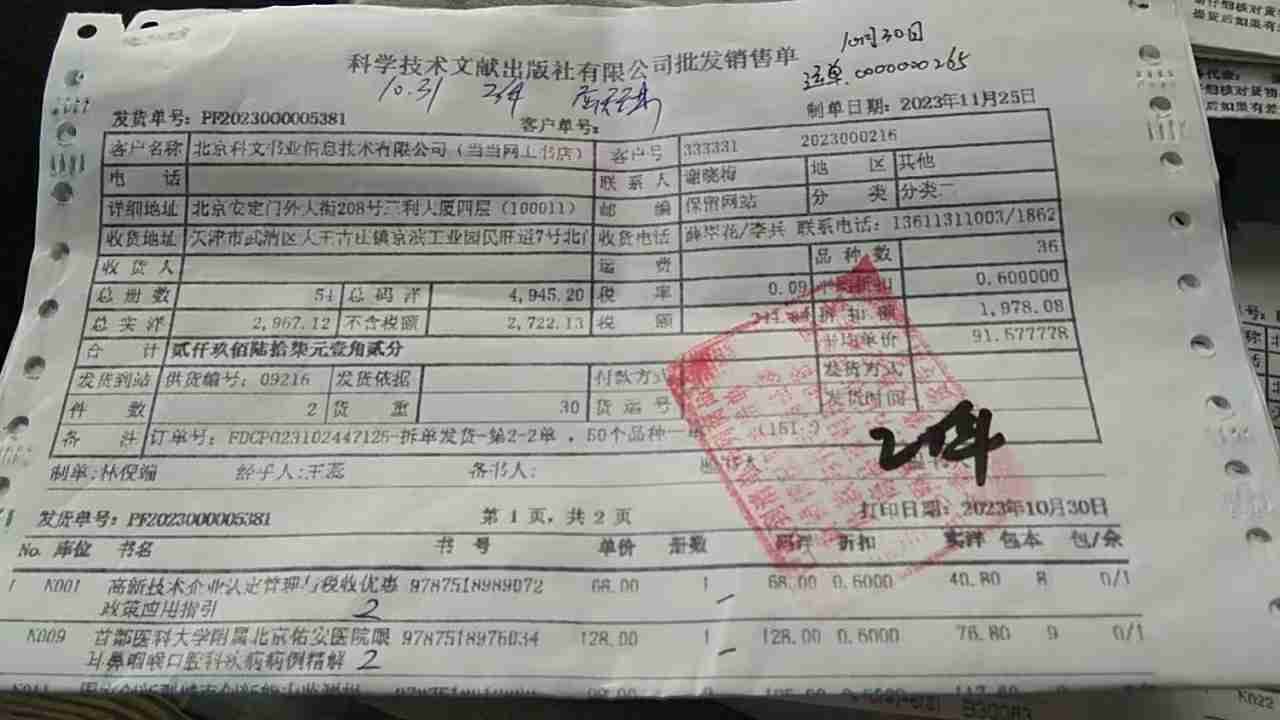 10月30日
科学技术文献出版社有限公司批发销售单
运单0000000265
10.31 2件
制单日期：2023年11月25日
发货单号：PF2023000005381 客户单号：
客户名称 北京科文书业信息技术有限公司（当当网上书店） 客户号 333331 2023000216
电 话 联系人 谢晓梅 地 区 其他
详细地址 北京安定门外大街208号三利大厦四层（100011） 邮 编 保留网站 分 类 分类二
收货地址 天津市武清区大王古庄镇京滨工业园民旺道7号北门 收货电话 薛翠花/李兵 联系电话：13611311003/1862
收货人 运 费 品种数 36
总册数 54 总码洋 4,945.20 税 率 0.09 平均折扣 0.600000
总实洋 2,967.12 不含税额 2,722.13 税 额 折扣额 1,978.08
合 计 贰仟玖佰陆拾柒元壹角贰分 平均单价 91.577778
发货到站 供货编号：09216 发货依据 付款方式 发货方式
件 数 2 货 重 30 货运号 发货时间
备 注 订单号：FDCP023102447125-拆单发货-第2-2单，50个品种一
2件
制单：林保端 经手人：王蕊 备书人：
发货单号：PF2023000005381 第 1 页，共 2 页 打印日期：2023年10月30日
No. 库位 书名 书 号 单价 册数 码洋 折扣 实洋 包本 包/余
1 K001 高新技术企业认定管理与税收优惠 9787518989072 68.00 1 68.00 0.6000 40.80 8 0/1
政策应用指引 2
K009 首都医科大学附属北京佑安医院眼 9787518976034 128.00 1 128.00 0.6000 76.80 9 0/1
耳鼻咽喉口腔科疾病病例精解 2